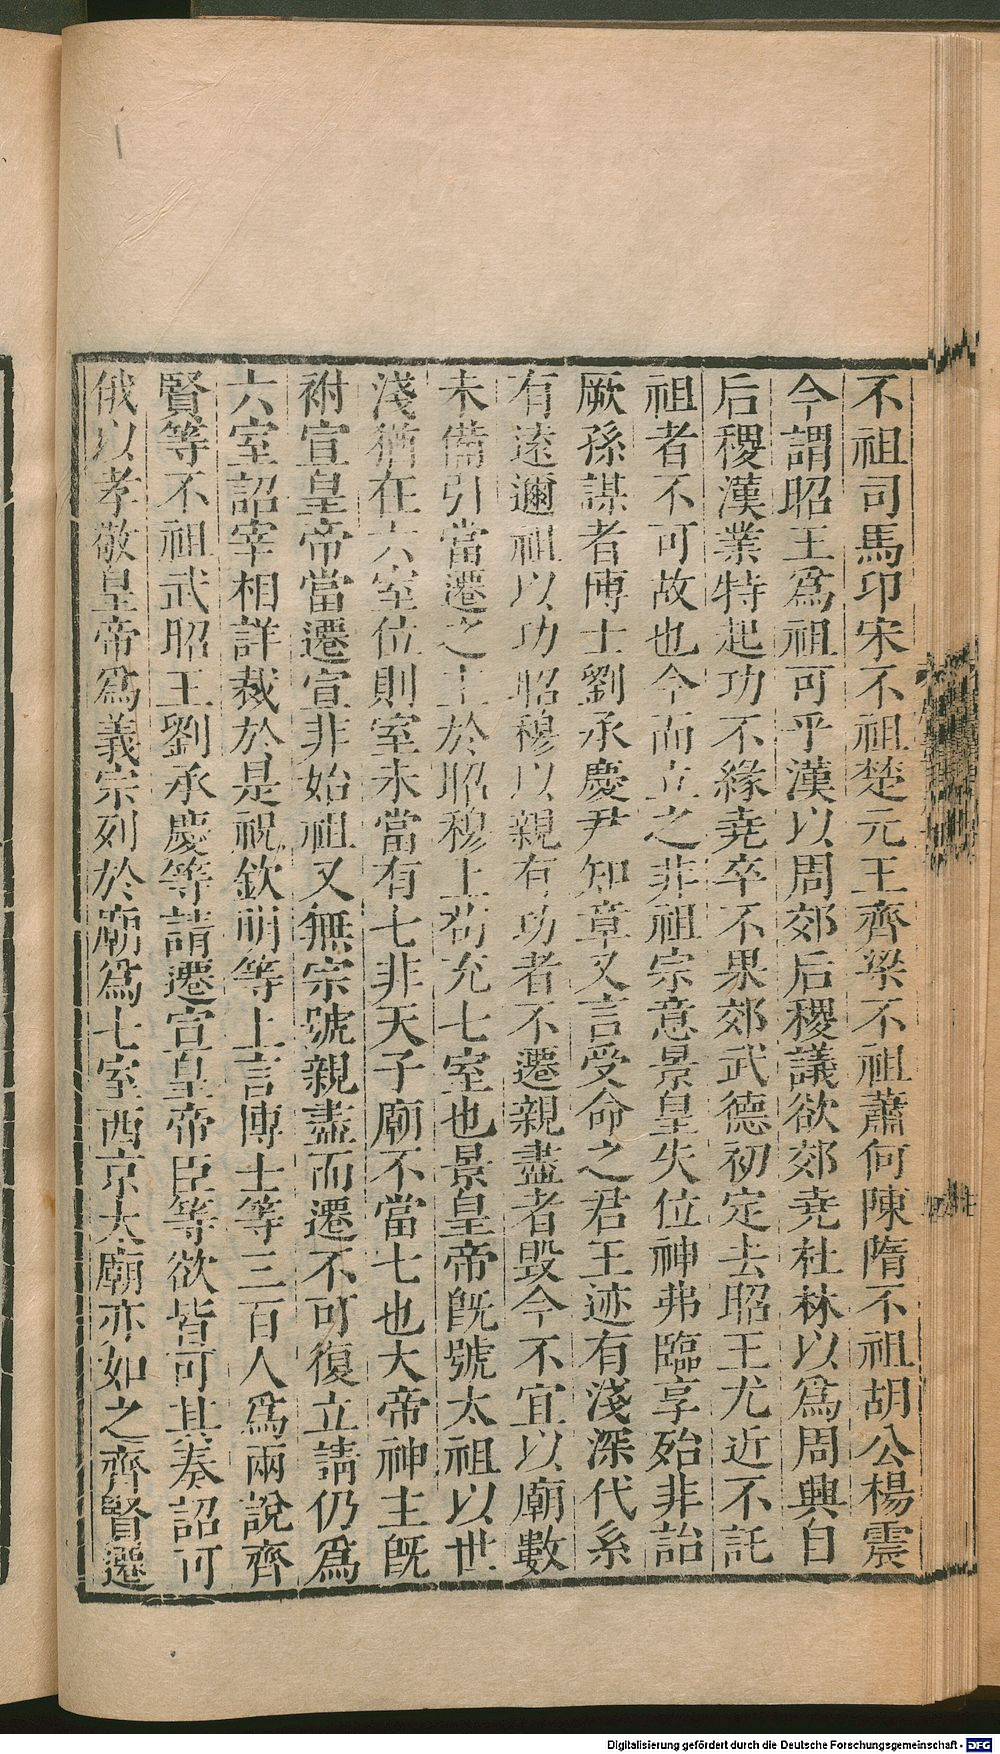 不祖司馬卬宋不祖楚元王齊梁不祖蕭何陳隋不祖胡公楊震
今謂昭王爲祖可乎漢以周郊后稷議欲郊堯杜林以爲周興自
后稷漢業特起功不緣堯卒不果郊武德初定去昭王尤近不託
祖者不可故也今而立之非祖宗意景皇失位神弗臨享殆非詒
厥孫謀者博士劉承慶尹知章又言受命之君王迹有淺深代系
有遠邇祖以功昭穆以親有功者不遷親盡者毀今不宜以廟數
未備引當遷之主於昭穆上苟充七室也景皇帝旣號太祖以世
淺猶在六室位則室未當有七非天子廟不當七也大帝神主旣
祔宣皇帝當遷宣非始祖又無宗號親盡而遷不可復立請仍爲
六室詔宰相詳裁於是祝欽明等上言博士等三百人爲兩說齊
賢等不祖武昭王劉承慶等請遷宣皇帝臣等欲皆可其奏詔可
俄以孝敬皇帝爲義宗列於廟爲七室西京太廟亦如之齊賢遷
Digitalisierung gefördert durch die Deutsche Forschungsgemeinschaft - DFG